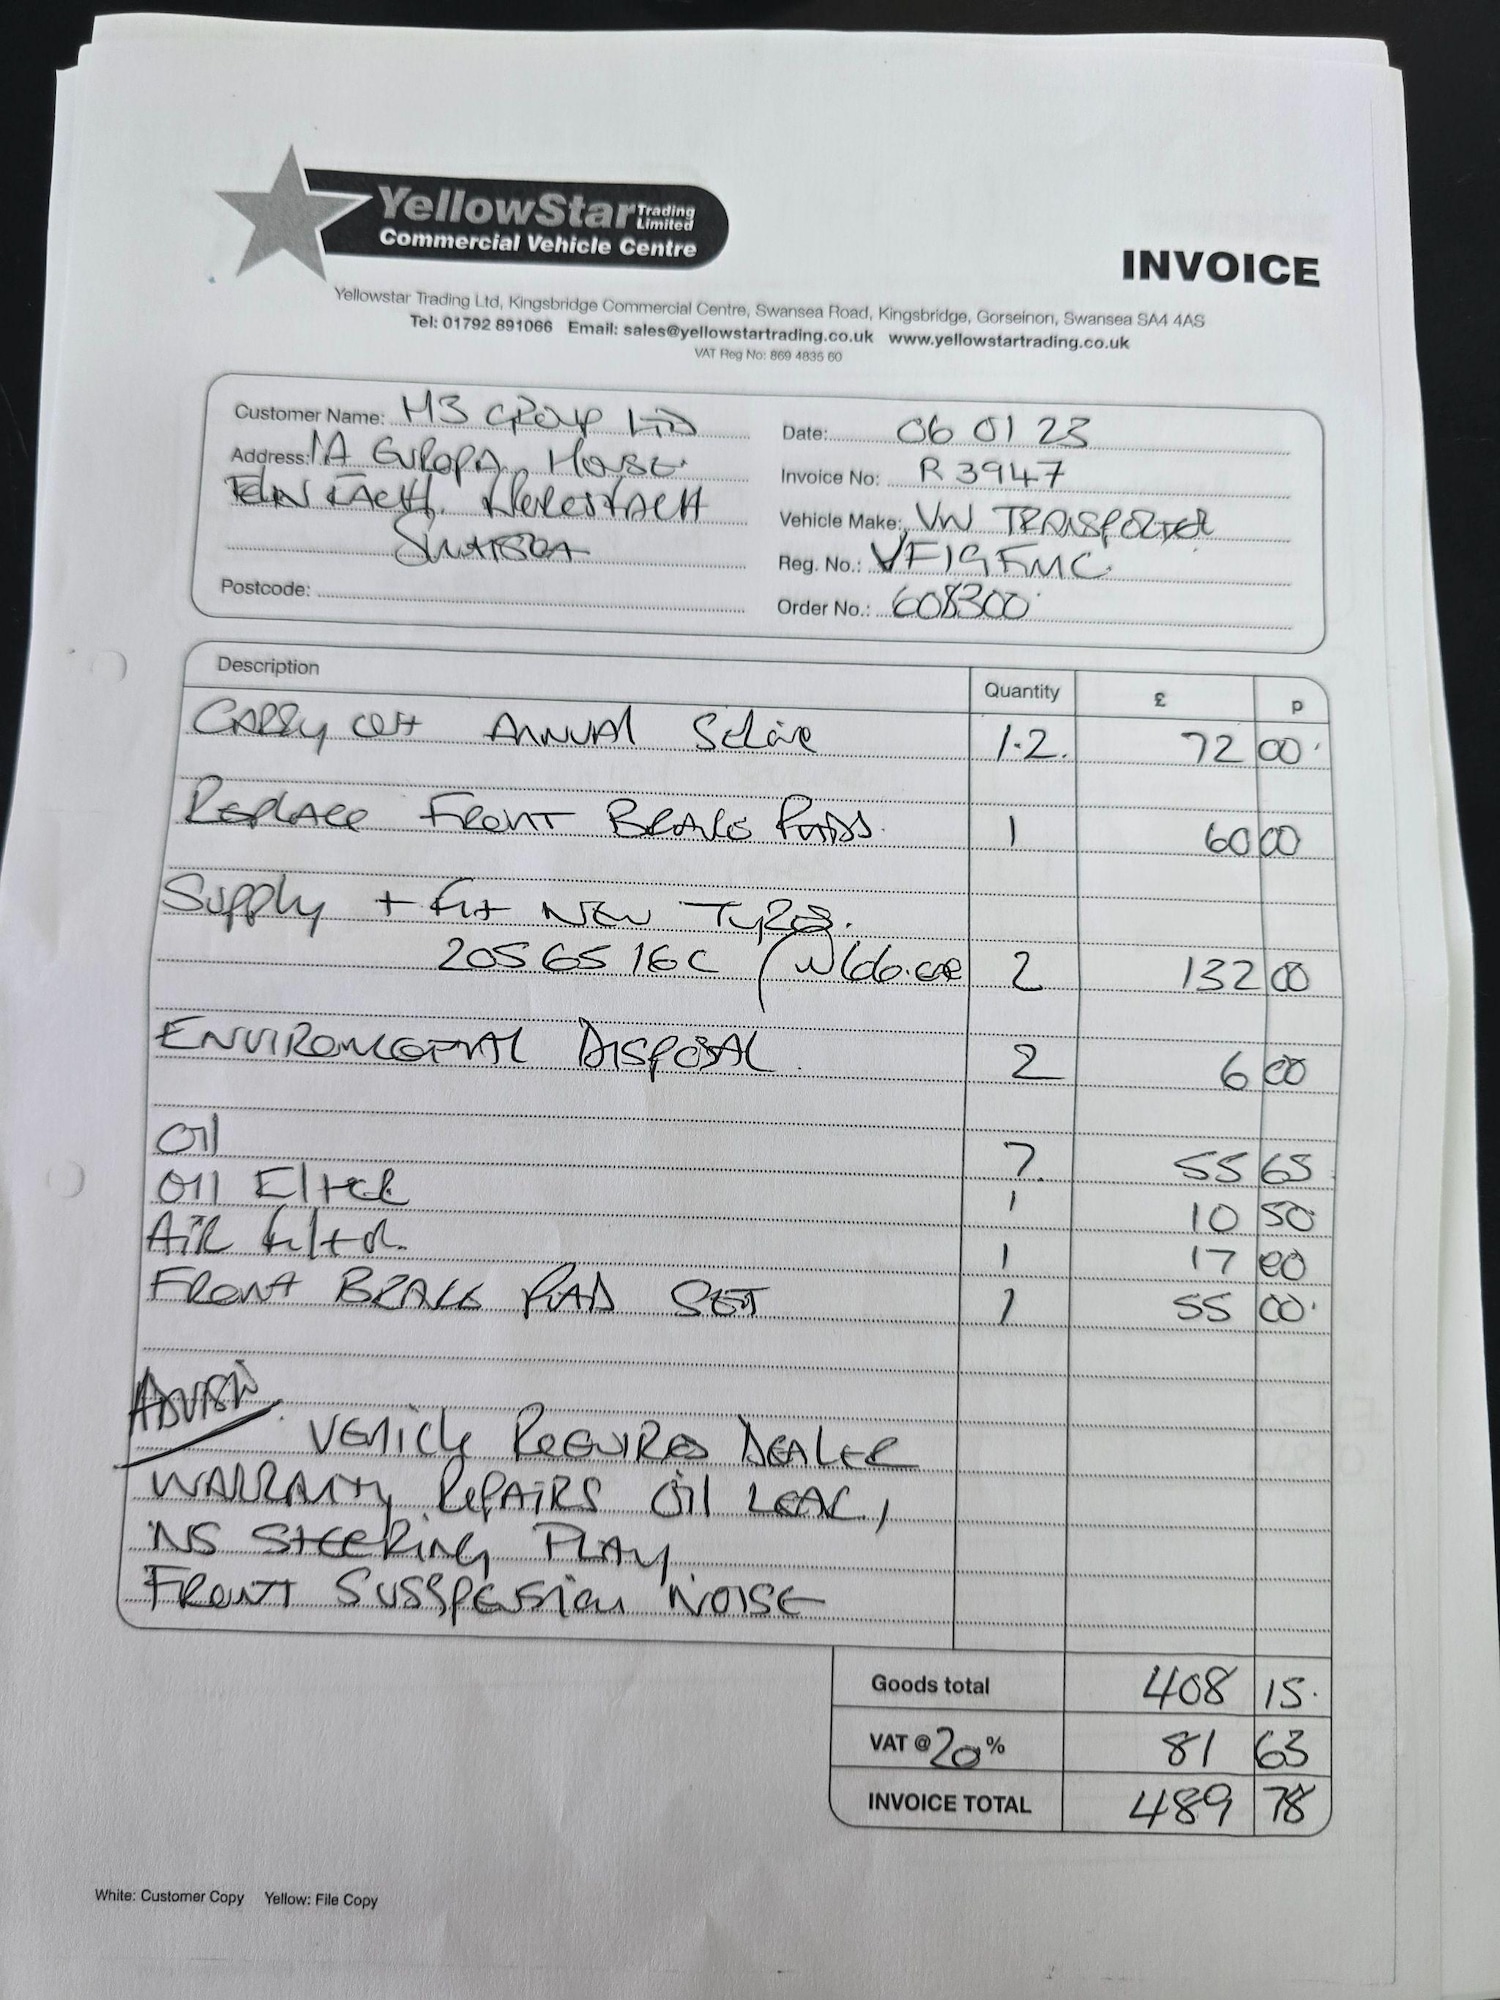 YellowStar Trading Limited
Commercial Vehicle Centre
INVOICE
Yellowstar Trading Ltd, Kingsbridge Commercial Centre, Swansea Road, Kingsbridge, Gorseinon, Swansea SA4 4AS
Tel: 01792 891066 Email: sales@yellowstartrading.co.uk www.yellowstartrading.co.uk
VAT Reg No: 869 4835 60
Customer Name: M3 GROUP LTD
Address: 1A EUROPA HOUSE
SWANSEA
Postcode:
Date: 06 01 23
Invoice No: R3947
Vehicle Make: VW TRANSPORTER
Reg. No.: VF19FMC
Order No.: 608300
Description Quantity £ p
CARRY OUT ANNUAL Service 1.2 72 00
REPLACE FRONT BRAKE PADS. 1 60 00
Supply + Fit NEW TYRES.
205 65 16C (W66.00 2 132 00
ENVIROMENTAL DISPOSAL. 2 6 00
OIL 7 55 65
OIL FILTER 1 10 50
AIR FILTER 1 17 00
FRONT BRAKE PAD SET 1 55 00
ADVISE
VEHICLE REQUIRES DEALER
WARRANTY REPAIRS OIL LEAK,
NS STEERING PLAY
FRONT SUSSPENSION NOISE
Goods total 408 15
VAT @ 20 % 81 63
INVOICE TOTAL 489 78
White: Customer Copy Yellow: File Copy